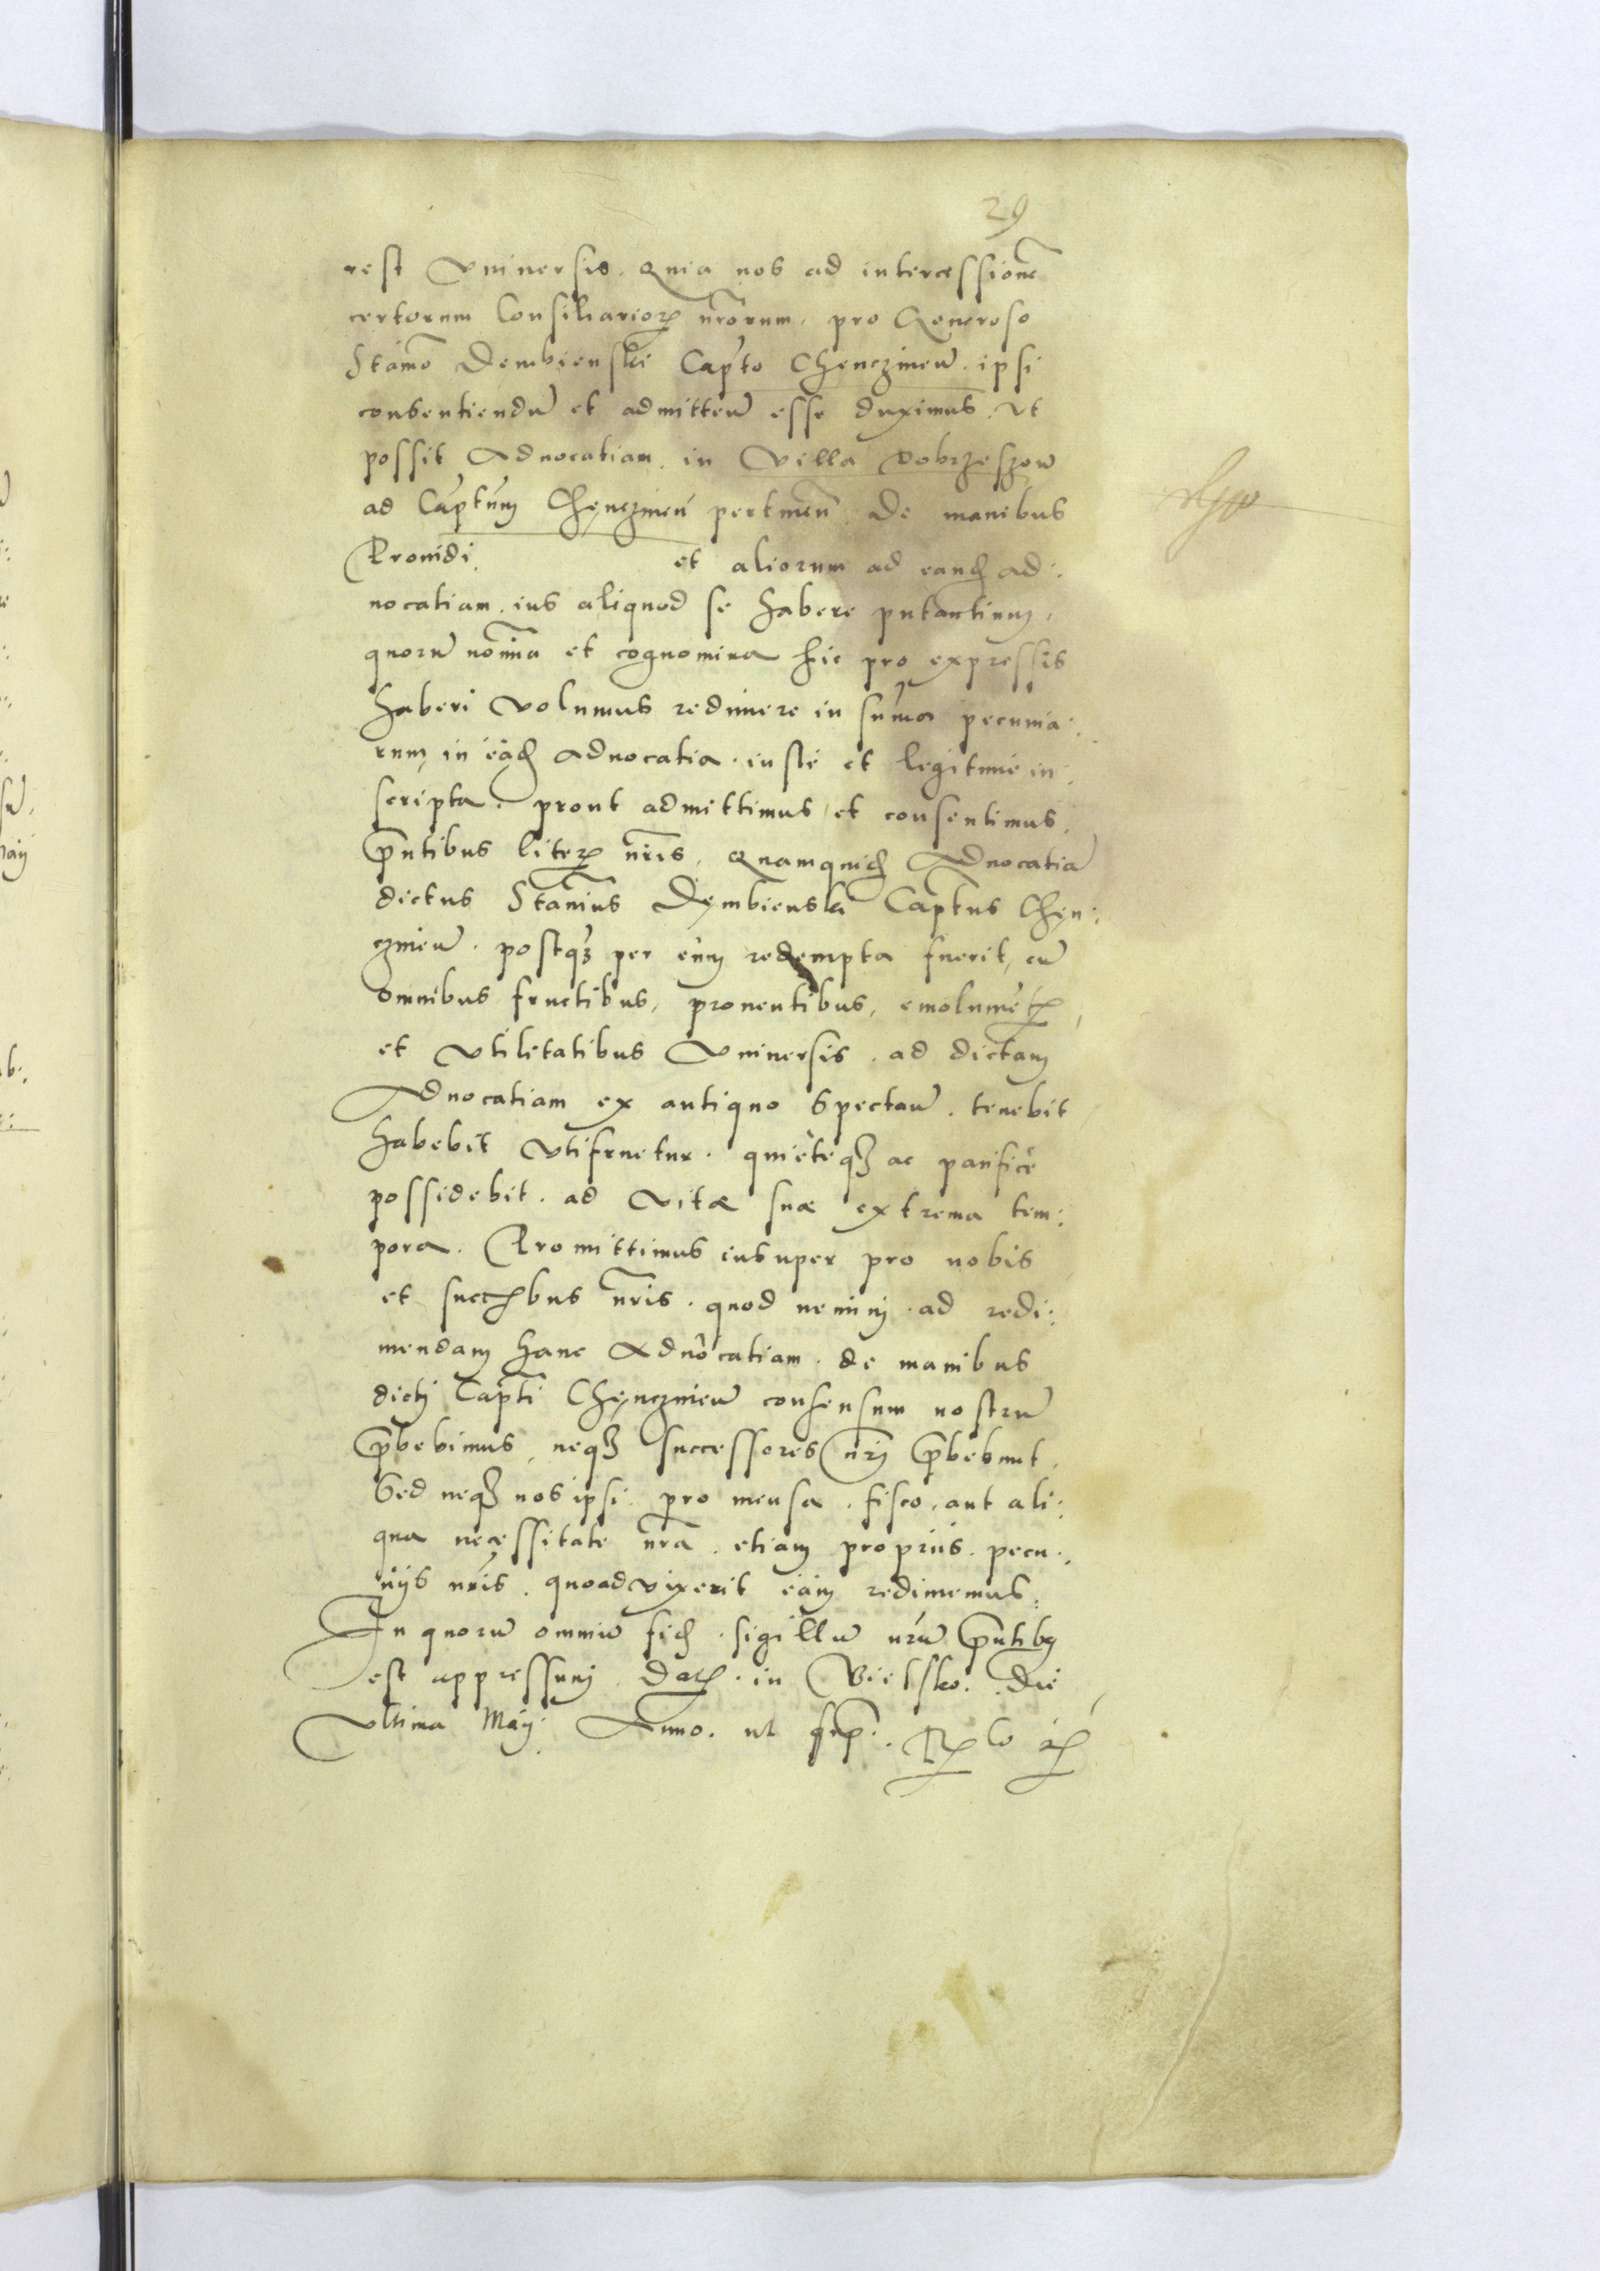 29
rest Vniuersis. Quia nos ad intercessionē
certorum Consiliarioꝝ nr̄orum, pro Generoso
Stāmo Dembienski Capto Chenczineñ. ipsi
consentiendū et admitteñ esse duximus. Vt
possit Aduocatiam in Villa Dobrzeszow
ad Captum Chęnczineñ pertineñ. De manibus
Prouidi et aliorum ad eand ad:
uocatiam ius aliquod se habere putantium,
quorū nomina et cognomina hic pro expressis
haberi Volumus redimere in suma pecunia:
rum in ead Aduocatia. iuste et legitime in:
scripta. prout admittimus et consentimus,
pntibus literꝝ nris. Quamquid Aduocatiā
dictus Stanius Dęmbienski Captus Chęn:
czineñ. postqꝫ per eum redempta fuerit, cū
omnibus fructibus, prouentibus, emolumētꝝ
et Vtilitatibus Vniuersis. ad dictam
Aduocatiam ex antiquo Spectañ. tenebit
habebit Vtifruetur. quieteqꝫ ac pacificè
possidebit. ad Vitæ suæ extrema tem:
pora. Promittimus insuper pro nobis
et succꝝbus nris. quod nemini ad redi:
mendam hanc Aduocatiam. de manibus
dicti Capti Chęnczineñ consensum nostrū
prbebimus, neqꝫ successores nri prbebunt.
Sed neqꝫ nos ipsi pro mensa. fisco, aut ali:
qua necessitate nra. etiam proprijs. pecu:
nijs nris. quoad vixerit eam redimemus.
In quorū omniū fid. sigillū nrū pntibꝫ
est appressum. Datꝝ. in Bielsko. Die
Vltima Maij. Anno. ut supꝝ.